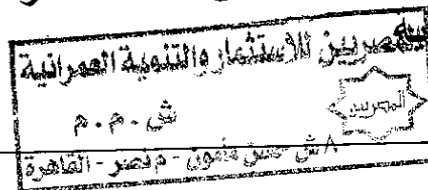 المصريين للاستثمار والتنمية العمرانية
ش . م . م
المصريين
٨ ش حسن مأمون - م نصر - القاهرة